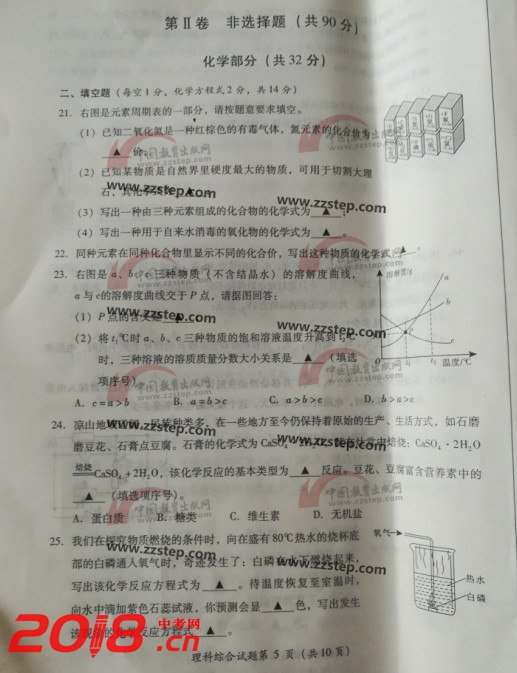 第Ⅱ卷 非选择题（共90分）
化学部分（共32分）
二、填空题（每空1分，化学方程式2分，共14分）
21. 右图是元素周期表的一部分，请按题意要求填空。
（1）已知二氧化氮是一种红棕色的有毒气体，氮元素的化合价为
▲ 价。
（2）已知某物质是自然界里硬度最大的物质，可用于切割大理
石，其化学
（3）写出一种由三种元素组成的化合物的化学式为 ▲ 。
（4）写出一种用于自来水消毒的氧化物的化学式为 ▲ 。
22. 同种元素在同种化合物里显示不同的化合价，写出这种物质的化学式 ▲ 。
23. 右图是a、b、c三种物质（不含结晶水）的溶解度曲线，
a与c的溶解度曲线交于P点，请据图回答：
（1）P点的含义是 ▲
（2）将t₁℃时a、b、c三种物质的饱和溶液温度升高到t₂℃
时，三种溶液的溶质质量分数大小关系是 ▲ （填选
项序号）。
A. c=a>b B. a=b>c C. a>b>c D. b>a>c
溶解度/g
a
b
c
P
0
t₁
t₂
温度/℃
24. 凉山地 民族种类多，在一些地方至今仍保持着原始的生产、生活方式，如石磨
磨豆花、石膏点豆腐。石膏的化学式为CaSO₄·2H₂O 焙烧：CaSO₄·2H₂O
焙烧
CaSO₄+2H₂O，该化学反应的基本类型为 ▲ 反应。豆花、豆腐富含营养素中的
▲ （填选项序号）。
A. 蛋白质 B. 糖类 C. 维生素 D. 无机盐
25. 我们在探究物质燃烧的条件时，向在盛有80℃热水的烧杯底
部的白磷通入氧气时，奇迹发生了：白磷在水下燃烧起来，
写出该化学反应方程式为 ▲ 。待温度恢复至室温时，
向水中滴加紫色石蕊试液，你预测会显 ▲ 色，写出发生
该 的化学反应方程式 ▲ 。
氧气
热水
白磷
理科综合试题第 5 页（共10页）
中国教育出版网
www.zzstep.com
2018.cn
中考网